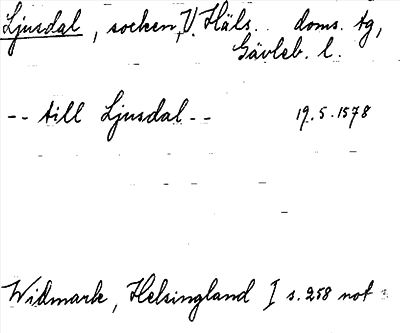 Ljusdal, socken, V. Häls. doms. tg,
Gävleb. l.
-- till Ljusdal -- 19.5.1578
Widmark, Helsingland I s. 258 not